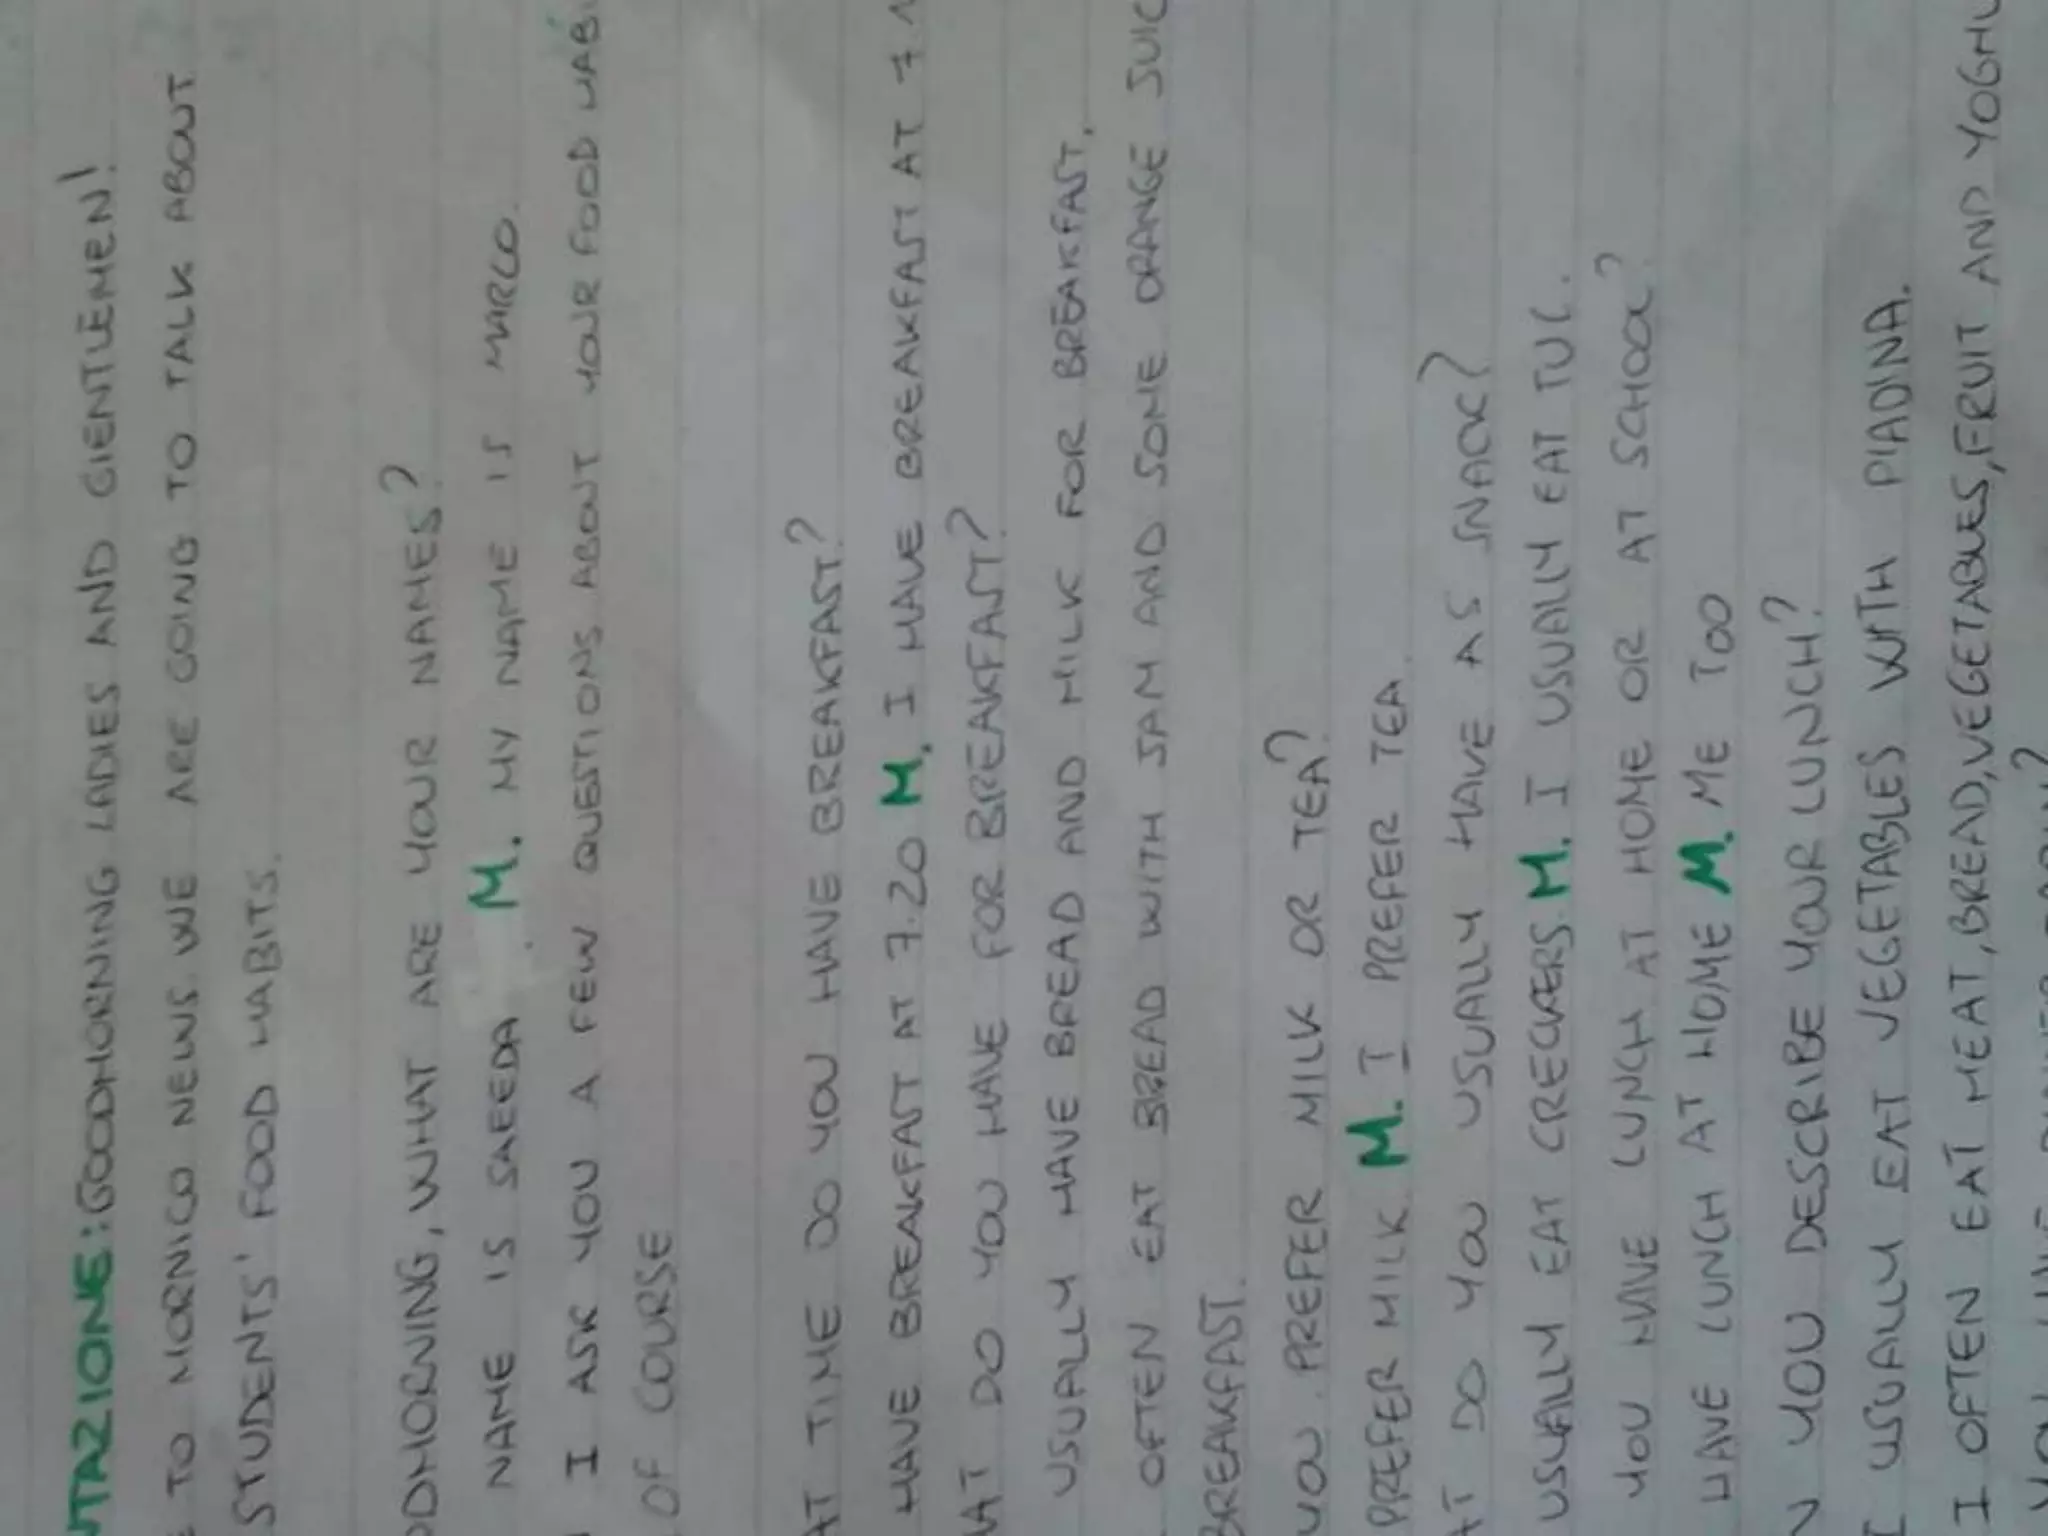 NTAZIONE: GOODMORNING LADIES AND GIENTLEMEN!
TO MORNICO NEWS. WE ARE GOING TO TALK ABOUT
STUDENTS' FOOD HABITS.
ODMORNING, WHAT ARE YOUR NAMES?
NAME IS SAEEDA. M. MY NAME IS MARCO.
I ASK YOU A FEW QUESTIONS ABOUT YOUR FOOD HABI
OF COURSE
AT TIME DO YOU HAVE BREAKFAST?
HAVE BREAKFAST AT 7.20 M. I HAVE BREAKFAST AT 7
AT DO YOU HAVE FOR BREAKFAST?
USUALLY HAVE BREAD AND MILK FOR BREAKFAST,
OFTEN EAT BREAD WITH JAM AND SOME ORANGE JUIC
BREAKFAST.
YOU PREFER MILK OR TEA?
PREFER MILK. M. I PREFER TEA.
AT DO YOU USUALLY HAVE AS SNACK?
USUALLY EAT CRECKERS. M. I USUALLY EAT TUC.
YOU HAVE LUNCH AT HOME OR AT SCHOOL?
HAVE LUNCH AT HOME M. ME TOO
N YOU DESCRIBE YOUR LUNCH?
I USUALLY EAT VEGETABLES WITH PIADINA.
I OFTEN EAT MEAT, BREAD, VEGETABLES, FRUIT AND YOGHU